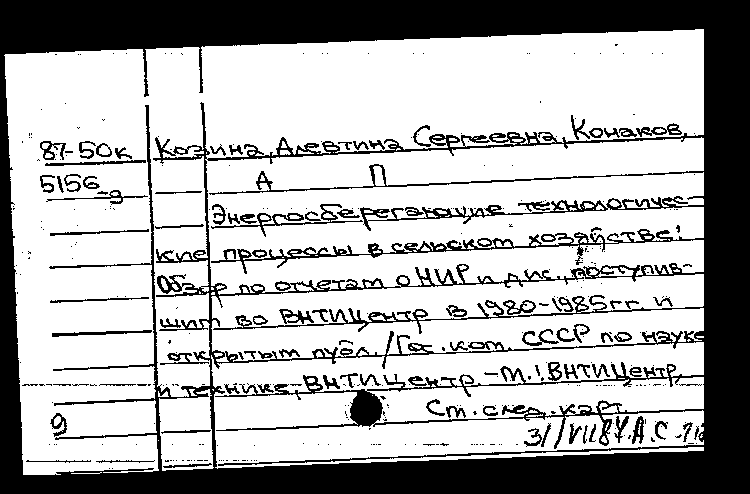 87-50к Козина, Алевтина Сергеевна, Конаков,
5156-д А П
Энергосберегающие технологичес-
кие процессы в сельском хозяйстве:
Обзор по отчетам о НИР и дис., поступив-
шим во ВНТИЦентр в 1980-1985гг. и
открытым публ./Гос.ком. СССР по науке
и технике, ВНТИЦентр.-М.:ВНТИЦентр,
9 См.след.карт.
31/VII87.А.С